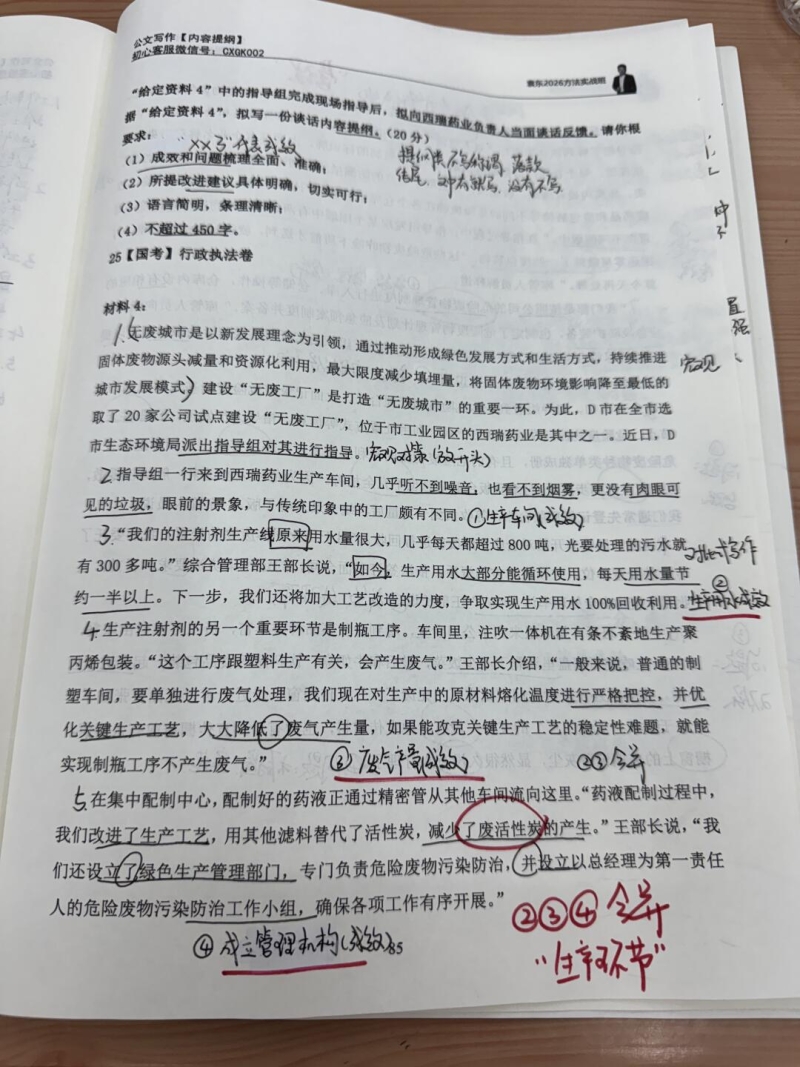 公文写作【内容提纲】
初心客服微信号：CXGK002
袁东2026方法实战班
“给定资料4”中的指导组完成现场指导后，拟向西瑞药业负责人当面谈话反馈。请你根
据“给定资料4”，拟写一份谈话内容提纲。（20分）
要求：
（1）成效和问题梳理全面、准确；
（2）所提改进建议具体明确，切实可行；
（3）语言简明，条理清晰；
（4）不超过450字。
25【国考】行政执法卷
宏观
材料4：
1.无废城市是以新发展理念为引领，通过推动形成绿色发展方式和生活方式，持续推进
固体废物源头减量和资源化利用，最大限度减少填埋量，将固体废物环境影响降至最低的
城市发展模式。建设“无废工厂”是打造“无废城市”的重要一环。为此，D市在全市选
取了20家公司试点建设“无废工厂”，位于市工业园区的西瑞药业是其中之一。近日，D
市生态环境局派出指导组对其进行指导。
2 指导组一行来到西瑞药业生产车间，几乎听不到噪音，也看不到烟雾，更没有肉眼可
见的垃圾，眼前的景象，与传统印象中的工厂颇有不同。①生产车间（成效）
3.“我们的注射剂生产线原来用水量很大，几乎每天都超过800吨，光要处理的污水就
有300多吨。”综合管理部王部长说，“如今，生产用水大部分能循环使用，每天用水量节
约一半以上。下一步，我们还将加大工艺改造的力度，争取实现生产用水100%回收利用。
②
生产用水成效
4 生产注射剂的另一个重要环节是制瓶工序。车间里，注吹一体机在有条不紊地生产聚
丙烯包装。“这个工序跟塑料生产有关，会产生废气。”王部长介绍，“一般来说，普通的制
塑车间，要单独进行废气处理，我们现在对生产中的原材料熔化温度进行严格把控，并优
化关键生产工艺，大大降低了废气产生量，如果能攻克关键生产工艺的稳定性难题，就能
实现制瓶工序不产生废气。”
③废气产量（成效）
②③合并
5.在集中配制中心，配制好的药液正通过精密管从其他车间流向这里。“药液配制过程中，
我们改进了生产工艺，用其他滤料替代了活性炭，减少了废活性炭的产生。”王部长说，“我
们还设立了绿色生产管理部门，专门负责危险废物污染防治，并设立以总经理为第一责任
人的危险废物污染防治工作小组，确保各项工作有序开展。”
④成立管理机构（成效）
85
②③④合并
“生产环节”